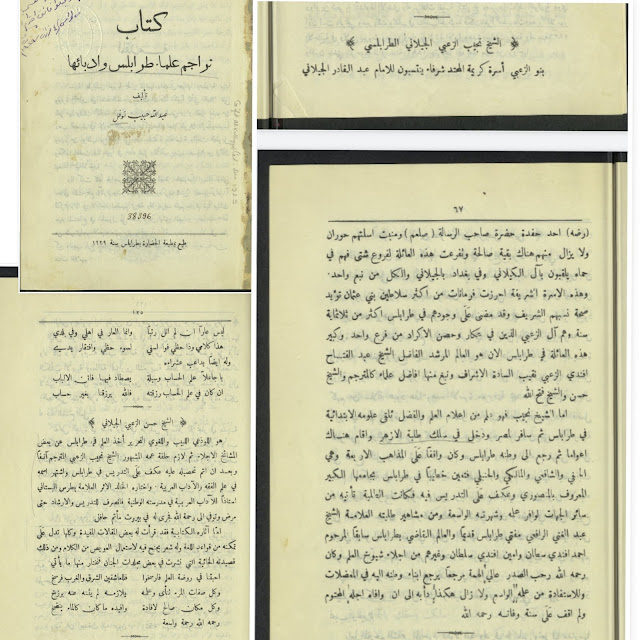 كتاب
تراجم علماء طرابلس وادبائها
تأليف
عبدالله حبيب نوفل
38396
طبع بمطبعة الحضارة بطرابلس سنة ١٩٢٩
﴿ الشيخ نجيب الزعبي الجيلاني الطرابلسي ﴾
بنو الزعبي أسرة كريمة المحتد شرفاء ينتسبون للامام عبد القادر الجيلاني
٦٧
(رضه) احد حفدة حضرة صاحب الرسالة (صلعم) ومنبت اسلتهم حوران
ولا يزال منهم هناك بقية صالحة وتفرعت هذه العائلة لفروع شتى فهم في
حماه يلقبون بآل الكيلاني وفي بغداد بالجيلاني والكل من نبع واحد.
وهذه الاسرة الشريفة احرزت فرمانات من اكثر سلاطين بني عثمان تؤيد
صحة نسبهم الشريف وقد مضى على وجودهم في طرابلس اكثر من ثلاثماية
سنة وهم آل الزعبي الذين في عكار وحصن الاكراد من فرع واحد وكبير
هذه العائلة في طرابلس الان هو العالم المرشد الفاضل الشيخ عبد الفتاح
افندي الزعبي نقيب السادة الاشراف ونبغ منها افاضل علماء كالمترجم والشيخ
حسن والشيخ فتح الله
اما الشيخ نجيب فهو علم من اعلام العلم والفضل تلقى علومه الابتدائية
في طرابلس ثم سافر لمصر ودخل في سلك طلبة الازهر واقام هنساك
اعواما ثم رجع الى وطنه طرابلس وكان واقفا على المذاهب الاربعة وهي
الحنفي والشافعي والمالكي والحنبلي فتعين خطابيا في طرابلس بجامعها الكبير
المعروف بالمنصوري وعكف على التدريس فيه فكانت الطلبة تأتيه من
سائر الجهات لوافر علمه وشهرته الواسعة ومن مشاهير طلبته العلامة الشيخ
عبد الغني الرافعي مفتي طرابلس قديما والعالم القاضي بطرابلس سابقا المرحوم
احمد افندي سلطان وامين افندي سلطان وغيرهم من اجلاء شيوخ العلم وكان
رحمه الله رحب الصدر عالي الهمة مرجعا يرجع ابناء وطنه اليه في المعضلات
وللاستفادة من علمه الواسع ولا زال هكذا دأبه الى ان وافاه اجله المحتوم
ولم اقف على سنة وفاته رحمه الله
١٣٥
ليس عارا ان لم انل رتبا وانما العار في اهلي وفي بلدي
هذا كلامي وذا حظي فوا اسفي لسوء حظي وافتقار يدي
وله ايضا يداعب عشراءه
يا جاعلا علم الحساب وسيلة يصطاد فيها فاتن الالباب
ان كان في علم الحساب رزقته فالله يرزقنا بغير حساب
﴿ الشيخ حسن الزعبي الجيلاني ﴾
هو اللوذعي اللبيب واللغوي النحرير أخذ العلم في طرابلس عن بعض
المشائخ الاجلاء ثم لازم حلقة عمه المشهور الشيخ نجيب الزعبي المترجم آنفا
وبعد ان اتم تحصيله عليه عكف على التدريس في طرابلس واشتهر اسمه
في علم الفقه والآداب العربية. واختاره الخالد الاثر العلامة بطرس البستاني
استاذا للآداب العربية في مدرسته الوطنية فانصرف للتدريس والارشاد حتى
مرض وتوفي الى رحمة الله فجرى له في بيروت مأتم حافل
اما آثاره الكتابية فقد قرأت له بعض المقالات المفيدة وكلها تدل على
تمكنه من قواعد اللغة وله شعر يجنح فيه لاستعمال العويص من الكلام ومن ذلك
قصيدته الحائية التي نشرت في بعض مجلات الجنان نختار منها ما يأتي
رحمه الله رحمة واسعة